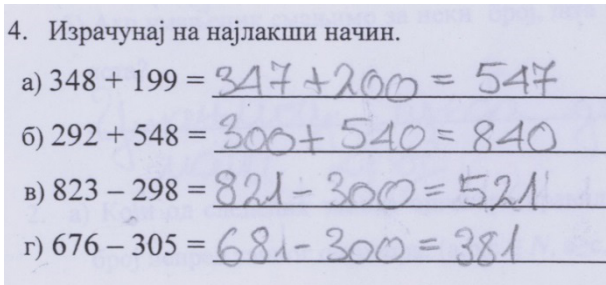 4. Израчунај на најлакши начин.
а) 348 + 199 = 347 + 200 = 547
б) 292 + 548 = 300 + 540 = 840
в) 823 – 298 = 821 - 300 = 521
г) 676 – 305 = 681 - 300 = 381